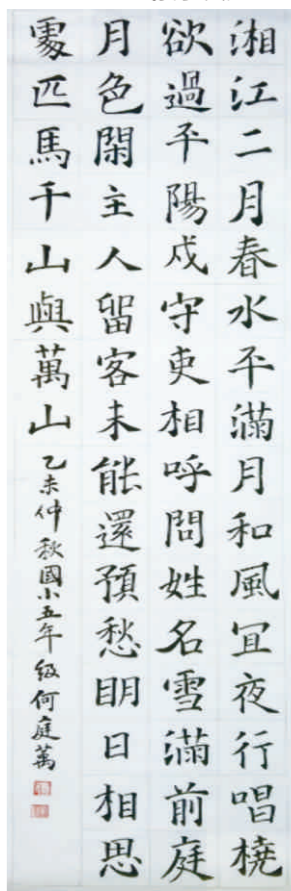 湘江二月春水平滿月和風宜夜行唱橈
欲過平陽戍守吏相呼問姓名雪滿前庭
月色閑主人留客未能還預愁明日相思
處匹馬千山與萬山
乙未仲秋國小五年級何庭萬